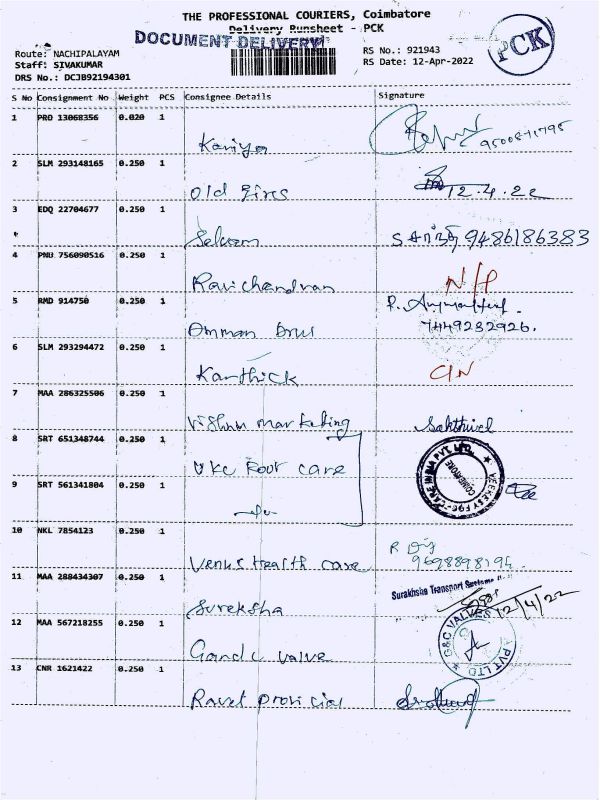 THE PROFESSIONAL COURIERS, Coimbatore
Delivery Runsheet - PCK
DOCUMENT DELIVERY
PCK
Route: NACHIPALAYAM
Staff: SIVAKUMAR
DRS No.: DCJB92194301
RS No.: 921943
RS Date: 12-Apr-2022
S No Consignment No Weight PCS Consignee Details Signature
1 PRO 13068356 0.020 1
Kaniya
2 SLM 293148165 0.250 1
Old Gires 12.4.22
3 EDQ 22704677 0.250 1
Selvam 9486186383
4 PNB 756090516 0.250 1
Ravichandran N/P
5 RMD 914750 0.250 1
Amman 7449232926.
6 SLM 293294472 0.250 1
Karthick C/N
7 MAA 286325506 0.250 1
Vishnu marketing Sakthivel
8 SRT 651348744 0.250 1
VKC Foot care
VEEKESY FOOTCARE INDIA PVT. LTD.
COIMBATORE
9 SRT 561341804 0.250 1
-do-
10 NKL 7854123 0.250 1
Venus Health care 9698898194.
11 MAA 288434307 0.250 1
Sureksha
Surakhsha Transport Systems
12/4/22
12 MAA 567218255 0.250 1
G and C valve
G&C VALVES PVT LTD
13 CNR 1621422 0.250 1
Ravel provicial